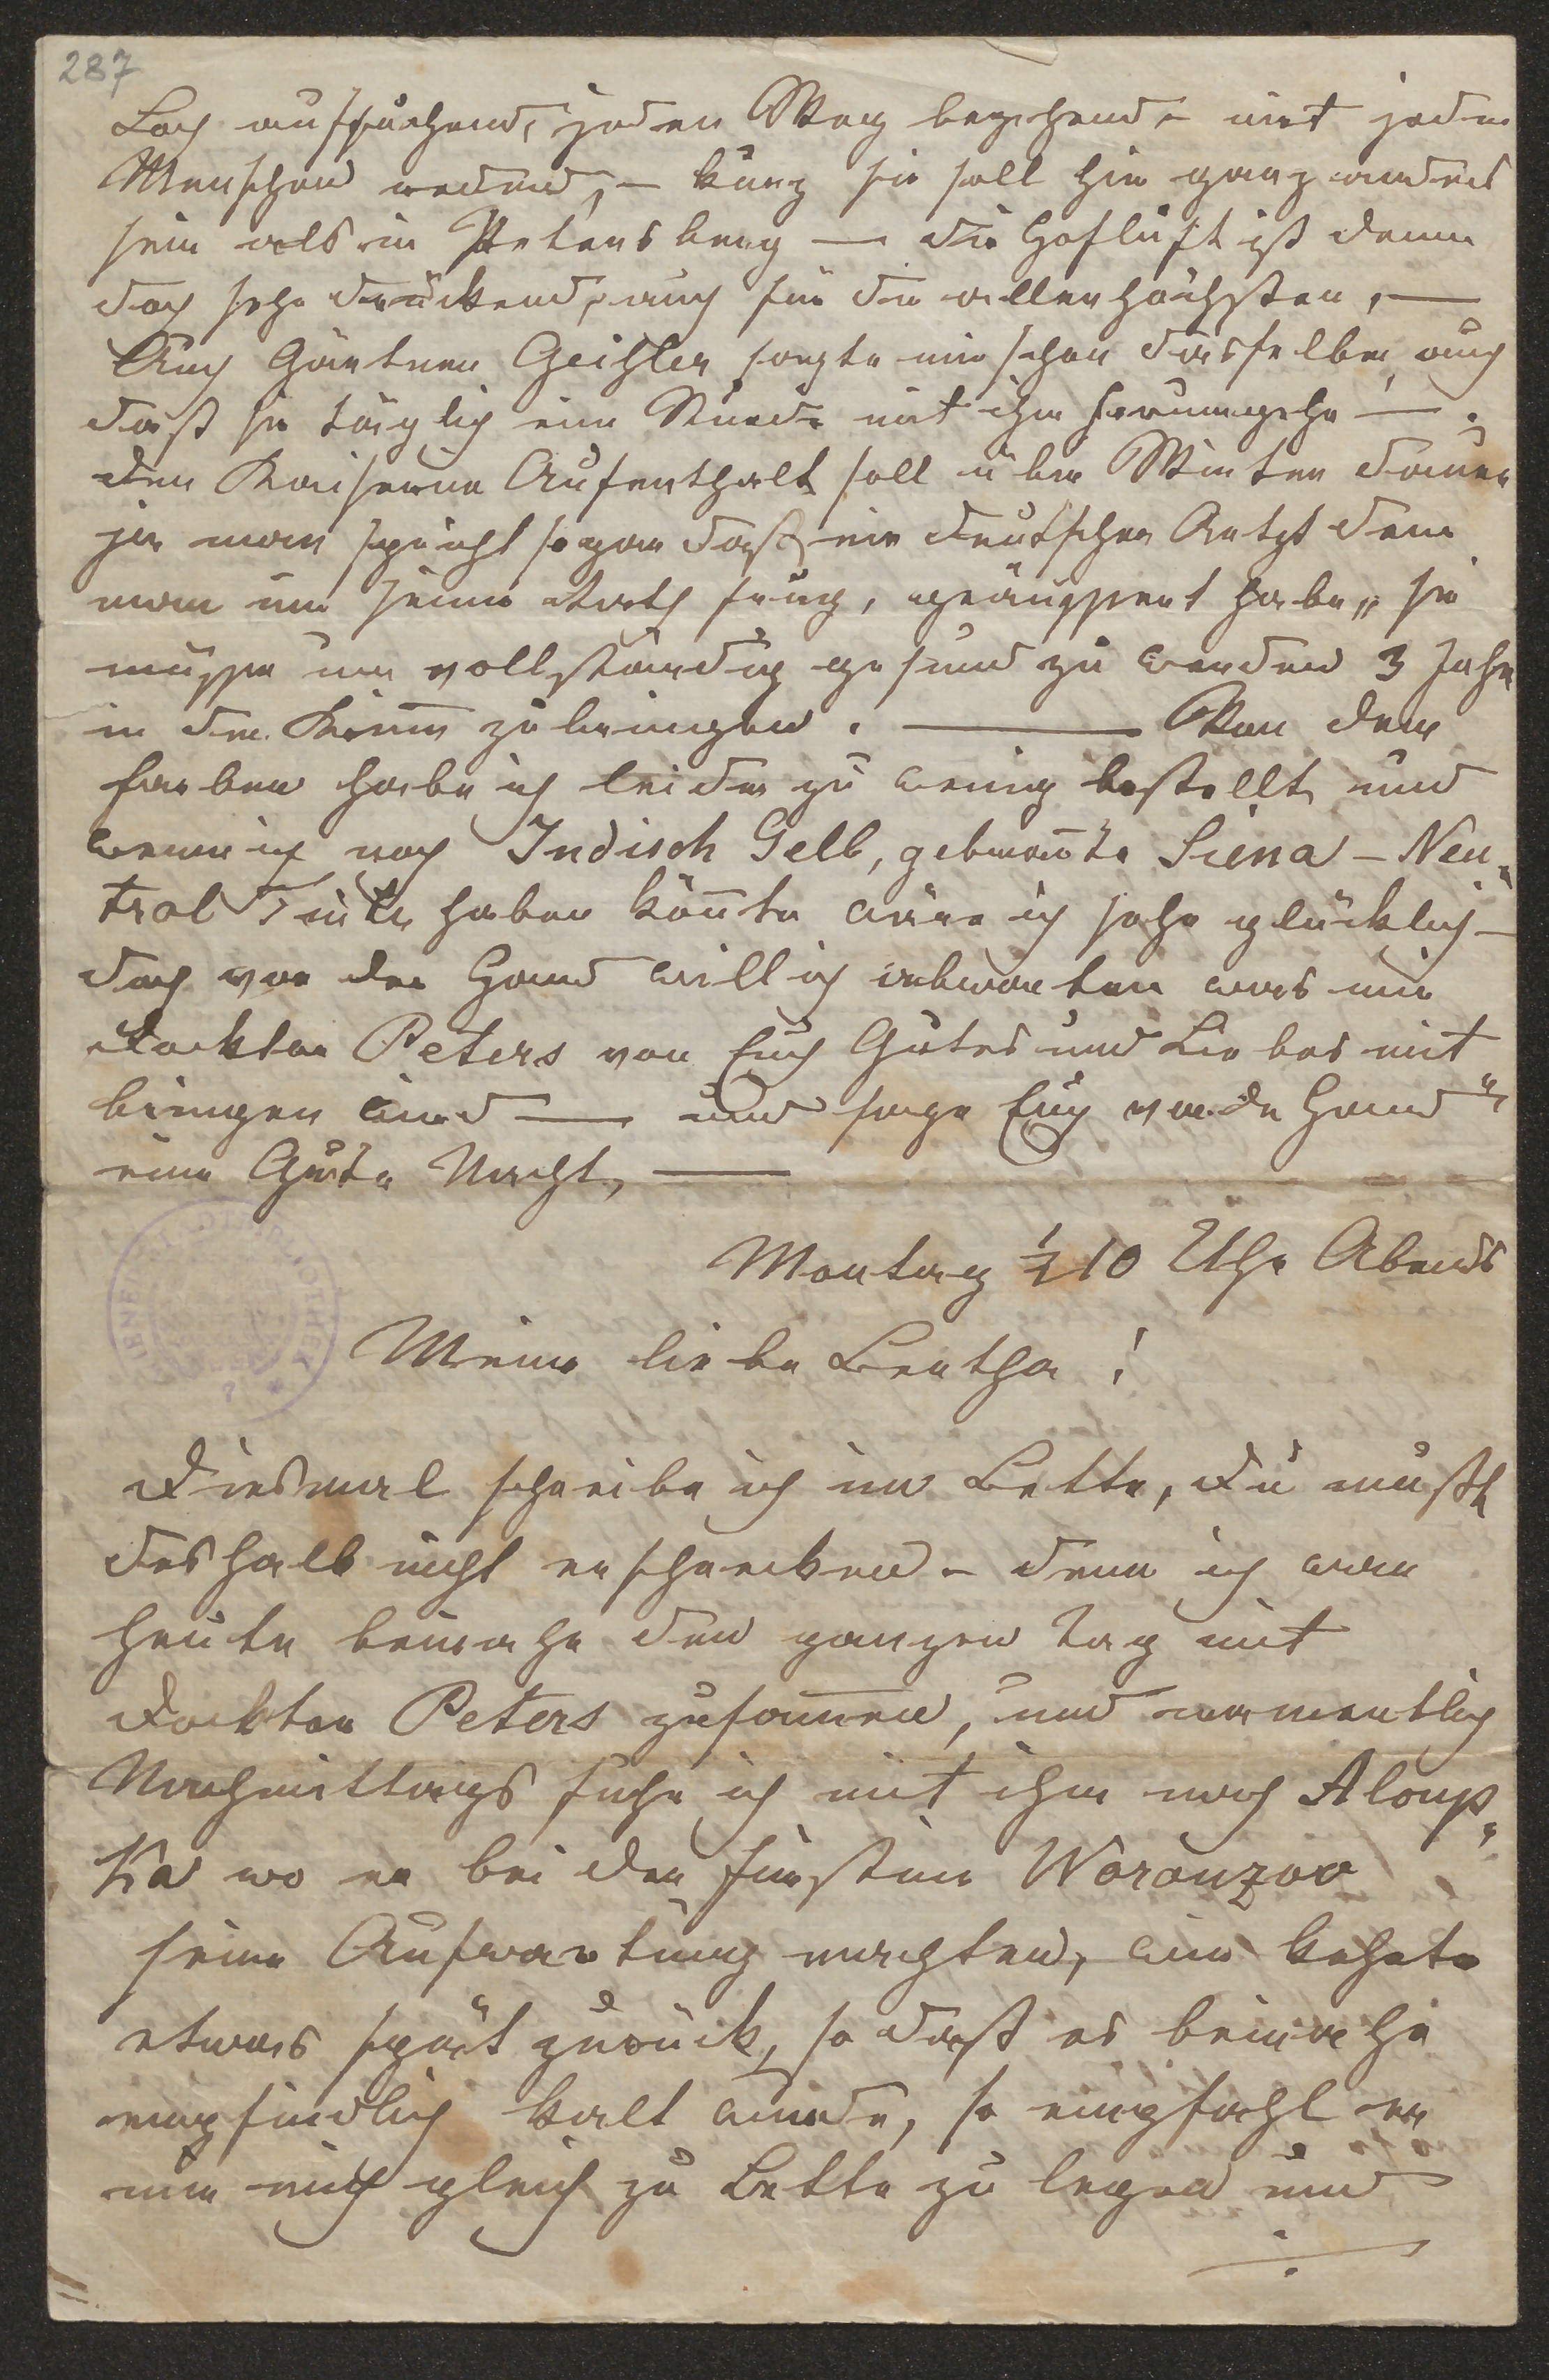 287
Loch aufsuchend, jeden Weg begehend – mit jedem
Menschen redend, – kurz sie soll hier ganz anders
sein als in Petersburg — die Hofluft ist denn
doch sehr drückend, auch für die allerhöchsten, —
Auch Gärtner Geißler sagte mir schon dasselbe, auch
daß sie täglich eine Stunde mit ihm herumgehe — .
Der Kaiserinn Aufenthalt soll über Winter dauern
ja man spricht sogar daß ein deutscher Artzt den
man um seinen Rath frug, geäussert habe „ sie
müsse um vollständig gesund zu werden 3 Jahre
in der Krim̄ zubringen. — Von den
Farben habe ich leider zu wenig bestellt, und
wenn ich noch Indisch Gelb, gebran̄te Siena – Neu„
tral Tinte haben kön̄te wäre ich sehr glücklich –
doch vor der Hand will ich abwarten was mir
Docktor Peters von Euch Gutes und Liebes mit
bringen wird — und sage Euch vor der Hand
eine Gute Nacht, —
Montag ½ 10 Uhr Abends
Meine liebe Bertha !
Diesmal schreibe ich im Bette, du mußt
deshalb nicht erschrecken – denn ich war
heute beinahe den ganzen Tag mit
Docktor Peters zusam̄en, und namentlich
Nachmittags fuhr ich mit ihm nach Aloup„
ka wo er bei der Fürstin Woronzow
seine Aufwartung machten, wir kehrte
etwas spät zurück, so daß es beinahe
empfindlich kalt wurde, so empfahl er
mir mich gleich zu Bette zu legen und
./.